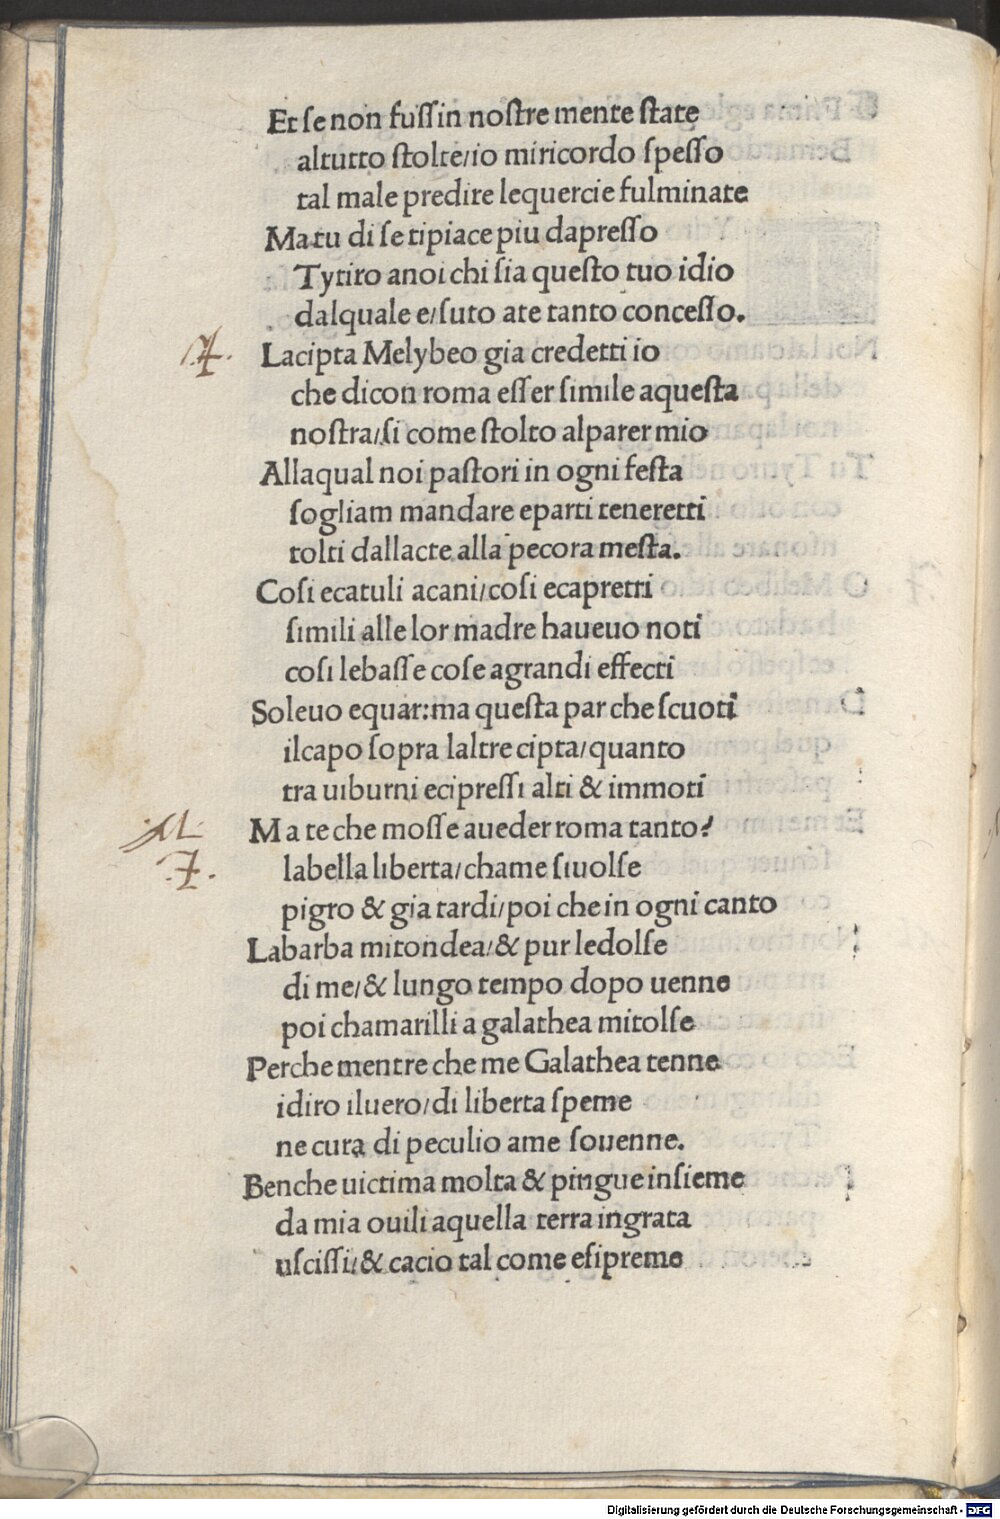 Et se non fuſſin noſtre mente ſtate
altutto ſtolte/io miricordo ſpeſſo
tal male predire lequercie fulminate
Matu di ſe tipiace piu dapreſſo
Tytiro anoi chi ſia queſto tuo idio
dalquale e/ſuto ate tanto conceſſo.
T. Lacipta Melybeo gia credetti io
che dicon roma eſſer ſimile aqueſta
noſtra/ſi come ſtolto alparer mio
Allaqual noi paſtori in ogni feſta
ſogliam mandare eparti teneretti
tolti dallacte alla pecora meſta.
Coſi ecatuli acani/coſi ecapretti
ſimili alle lor madre haueuo noti
coſi lebaſſe coſe agrandi effecti
Soleuo equar:ma queſta par che ſcuoti
ilcapo ſopra laltre cipta/quanto
tra uiburni ecipreſſi alti & immoti
M Ma te che moſſe aueder roma tanto?
.T. labella liberta/chame ſiuolſe
pigro & gia tardi/poi che in ogni canto
Labarba mitondea/& pur ledolſe
di me/& lungo tempo dopo uenne
poi chamarilli a galathea mitolſe
Perche mentre che me Galathea tenne
idiro iluero/di liberta ſpeme
ne cura di peculio ame ſouenne.
Benche uictima molta & pingue inſieme
da mia ouili aquella terra ingrata
uſciſſi/& cacio tal come eſipreme
Digitalisierung gefördert durch die Deutsche Forschungsgemeinschaft - DFG